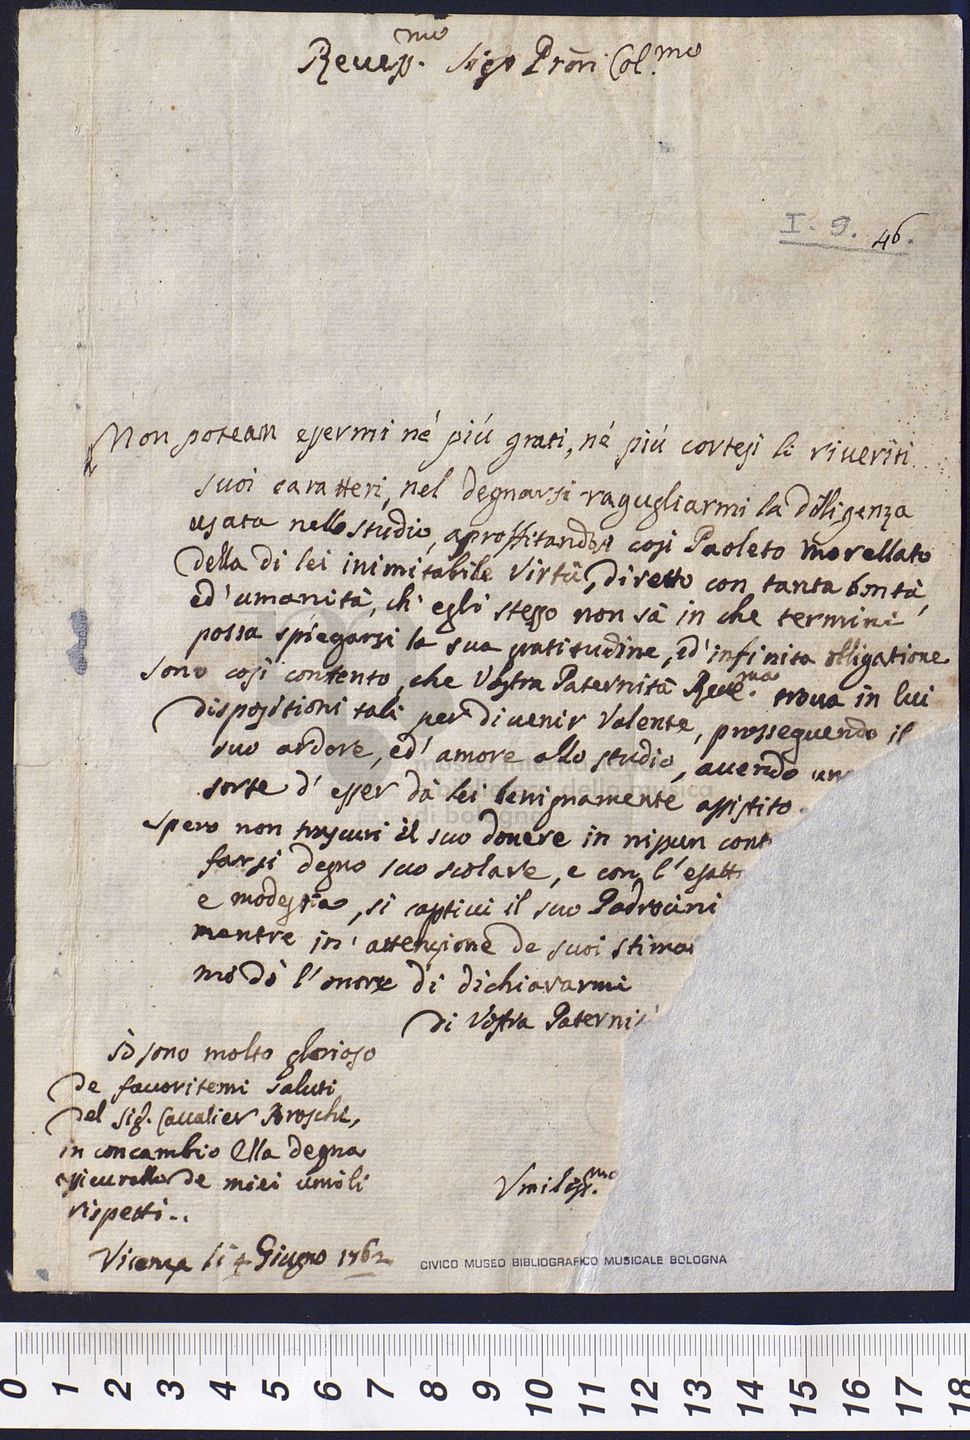 Reveress.mo Sigr Prõn Col.mo
I. 9. 46.
Non potean essermi né più grati, né più cortesi li riveriti
suoi caratteri, nel degnarsi ragugliarmi la dilligenza
usata nello studio, aproffitandosi così Paoleto Morellato
della di lei inimitabile virtù, diretto con tanta bontà,
ed' umanità, ch' egli stesso non sà in che termini
possa spiegarsi la sua gratitudine, ed' infinita obligatione
sono così contento, che Vostra Paternità Reve.ma trova in lui
dispositioni tali per divenir valente, prosseguendo il
suo ardore, ed' amore allo studio, avendo una
sorte d' esser dà lei benignamente assistito.
spero non trascuri il suo dovere in nissun cont
farsi degno suo scolare, e con l' esatt
e modestia, si captivi il suo Padrocini
mentre in' attenzione de suoi stima
mi dò l' onore di dichiararmi
di Vostra Paternit
Iò sono molto glorioso
de favoritemi saluti
del Sig.r Cavalier Broschi,
in concambio Ella degna
assicurallo de miei umili
rispetti..
Umiliss.mo
Vicenza li 4 Giugno 1762
CIVICO MUSEO BIBLIOGRAFICO MUSICALE BOLOGNA
museo internazionale
e biblioteca della musica
di bologna
0 1 2 3 4 5 6 7 8 9 10 11 12 13 14 15 16 17 18